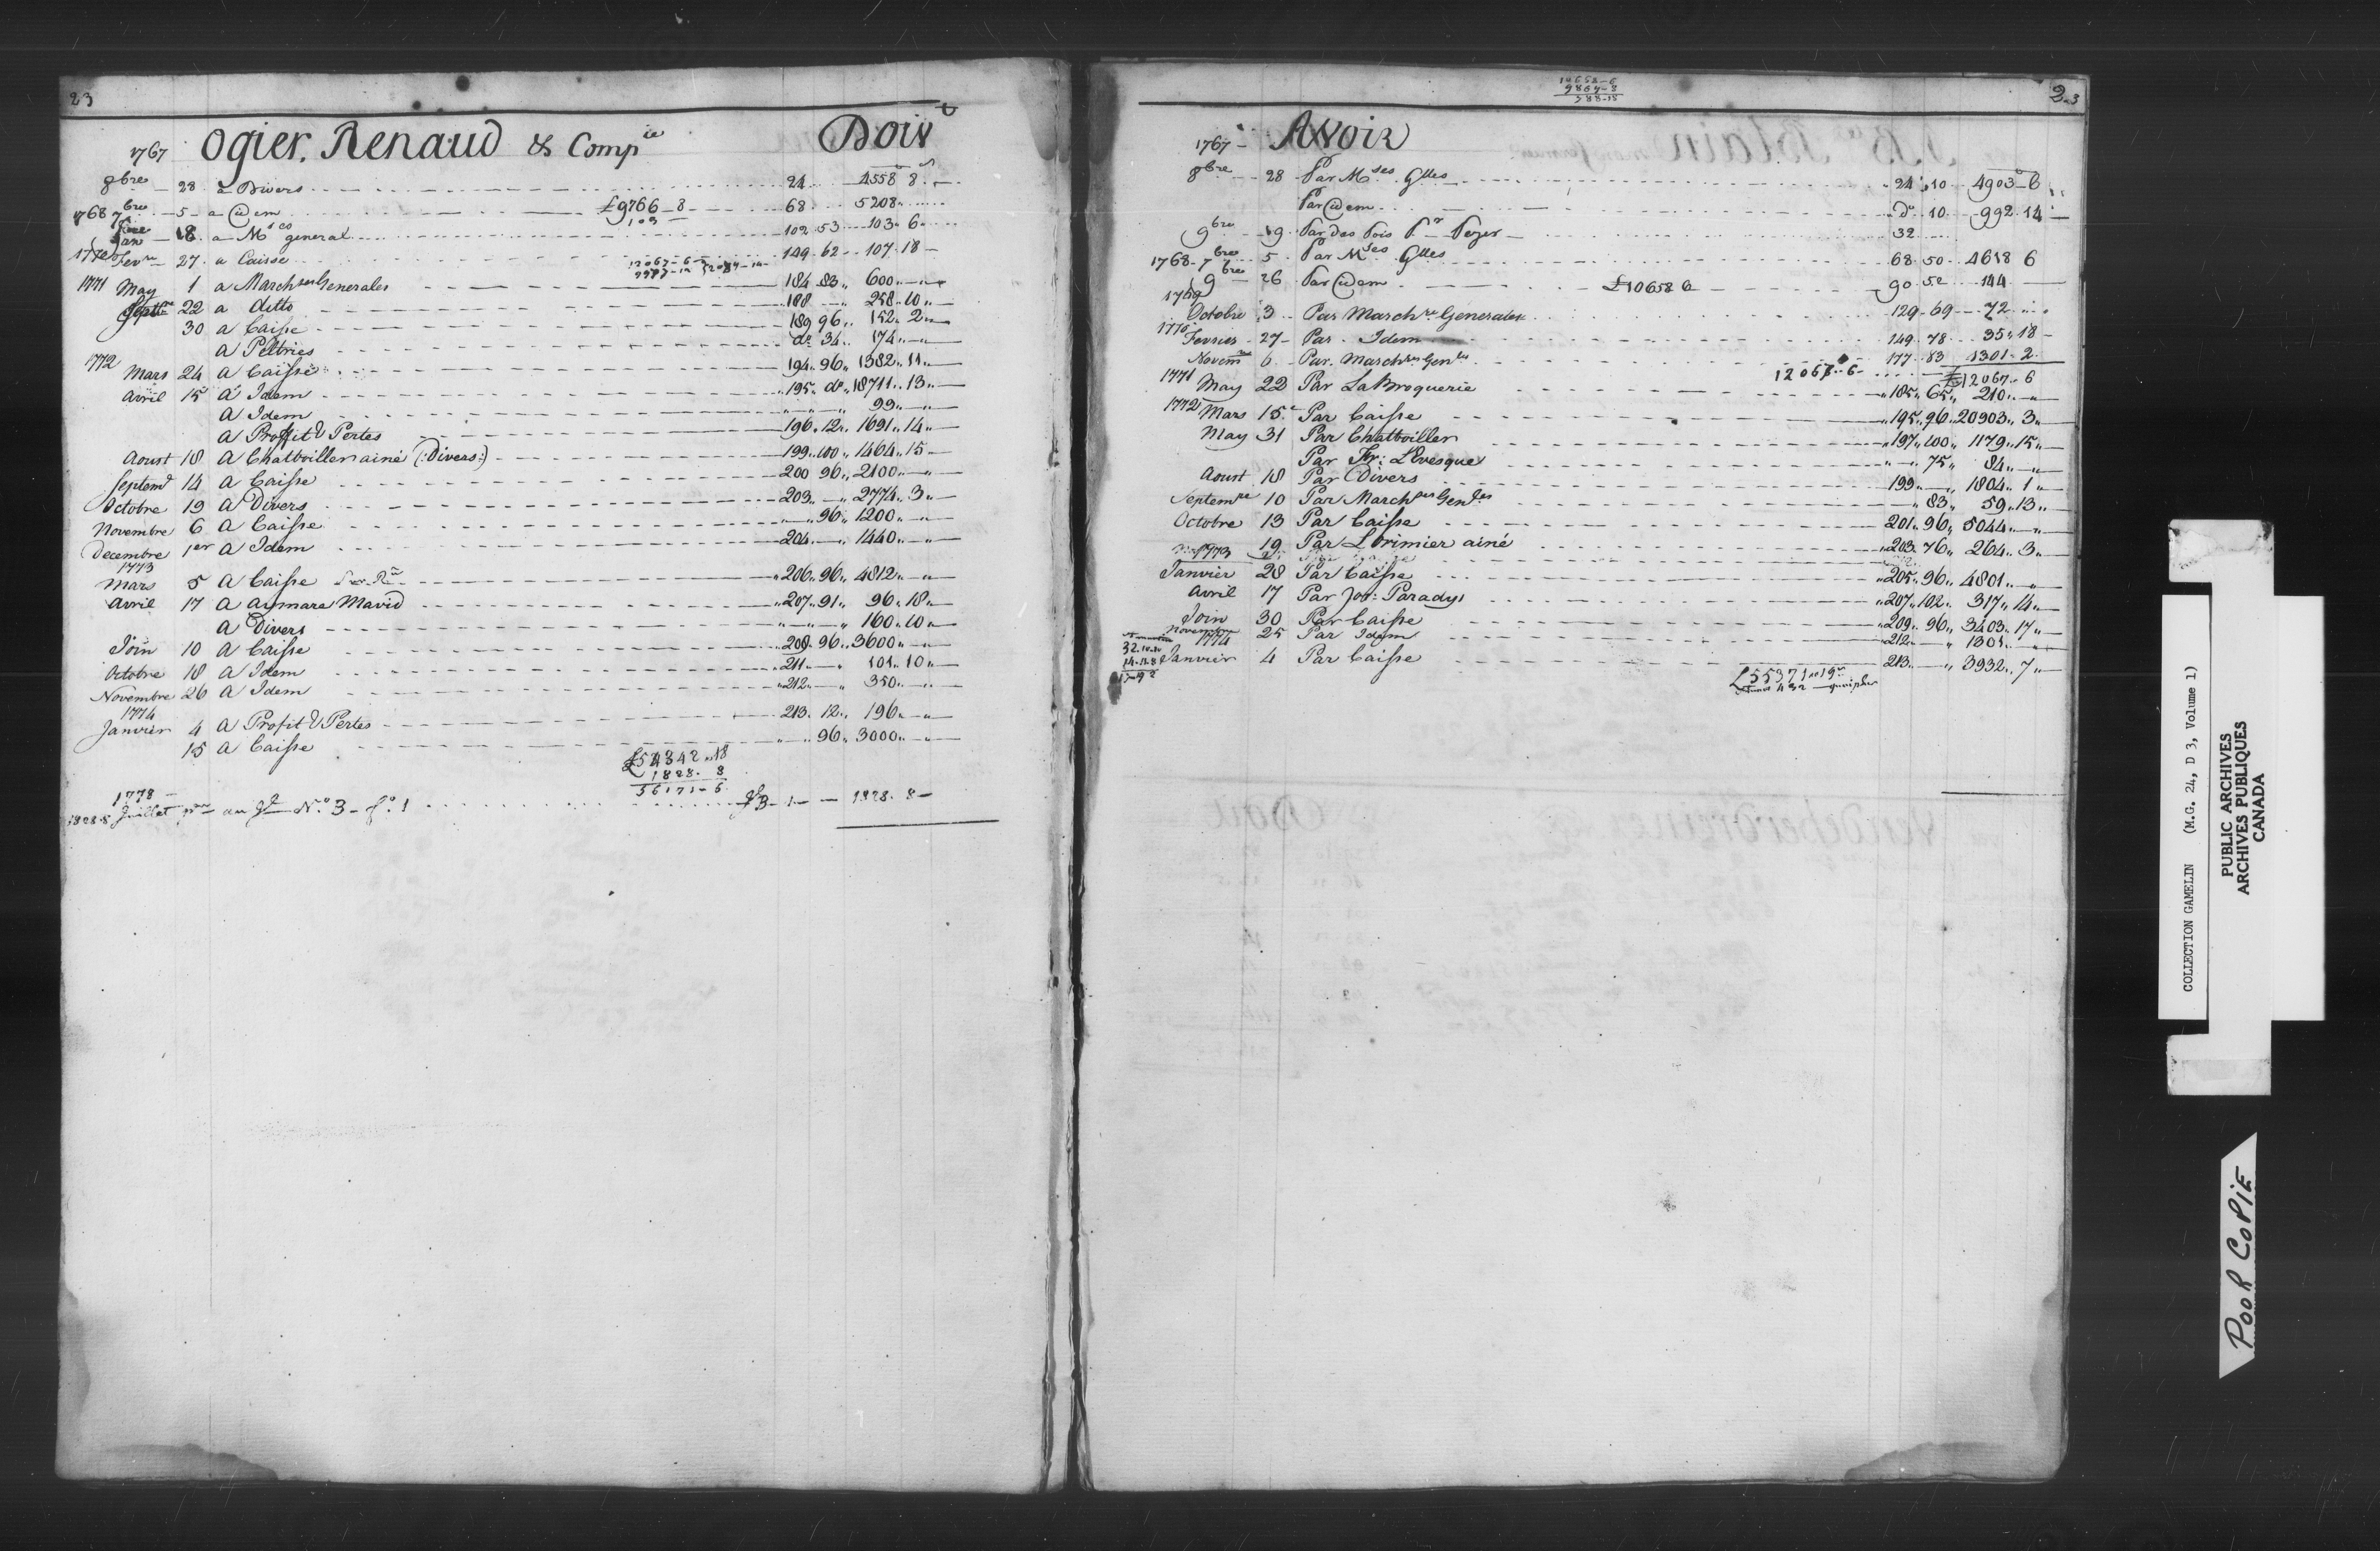 23
1767 Ogier, Renaud & Compie Doit
8bre 28 a Divers 24 4558 8
1768 7bre 5 a idem £9766_8 68 5208
103
18 a Mses general 102 53 103 6
1770 Fevre 27 a Caisse 149 62 107 18
12067-6
1771 May 1 a Marchses Generales 184 83 600
22 a ditto 188 258 10
30 a Caisse 189 96 152 2
a Peltries do 34 174
1772 Mars 24 a Caisse 194 96 1382 11
Avril 15 a Idem 195 do 18711 13
a Idem 99
a Proffit & Pertes 196 12 1691 14
Aoust 18 a Chatboiller ainé (:Divers:) 199 100 1464 15
Septemd 14 a Caisse 200 96 2100
Octobre 19 a Divers 203 2774 3
Novembre 6 a Caisse 96 1200
Decembre 1er a Idem 204 1440
1773
Mars 5 a Caisse 206 96 4812
Avril 17 a Aymare Mavid 207 91 96 18
a Divers 160 10
Join 10 a Caisse 208 96 3600
Octobre 18 a Idem 211 101 10
Novembre 26 a Idem 212 350
1774
Janvier 4 a Profit & Pertes 213 12 196
15 a Caisse 96 3000
£54342 18
1828 8
56171-6
1778
1828.8 Juillet au No. 3 fo. 1 1828 8
10658-6
23
1767 Avoir
8bre 28 Par Mses Glles 24 10 4903 6
Par idem do 10 992 14
9bre 19 Par des Pois Pr Peger 32
1768 7bre 5 Par Mses Glles 68 50 4618 6
9bre 26 Par idem £10658 6 90 52 144
1769
Octobre 3 Par Marchse Generales 129 69 72
1770 Fevrier 27 Par Idem 149 78 35 18
Novemre 6 Par Marchses Genles 177 83 1301 2
12067 6 £12067 6
1771 May 22 Par LaBroquerie 185 65 210
1772 Mars 15 Par Caisse 195 96 20903 3
May 31 Par Chatboiller 197 100 1179 15
Par Fr: L'Evesque 75 84
Aoust 18 Par Divers 199 1804 1
Septembre 10 Par Marchses Genles 83 59 13
Octobre 13 Par Caisse 201 96 5044
19 Par Lorimier ainé 203 76 264 3
1773
Janvier 28 Par Caisse 205 96 4801
Avril 17 Par Jos: Paradys 207 102 317 14
Join 30 Par Caisse 209 96 3403 17
Novembre 25 Par Idem 212 1301
1774
Janvier 4 Par Caisse 213 3932 7
£55371 19
COLLECTION GAMELIN (M.G. 24, D 3, Volume 1)
PUBLIC ARCHIVES
ARCHIVES PUBLIQUES
CANADA
POOR COPIE